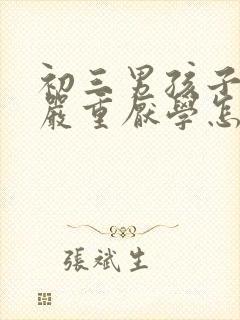 初三男孩子
嚴重厭學怎
張斌生